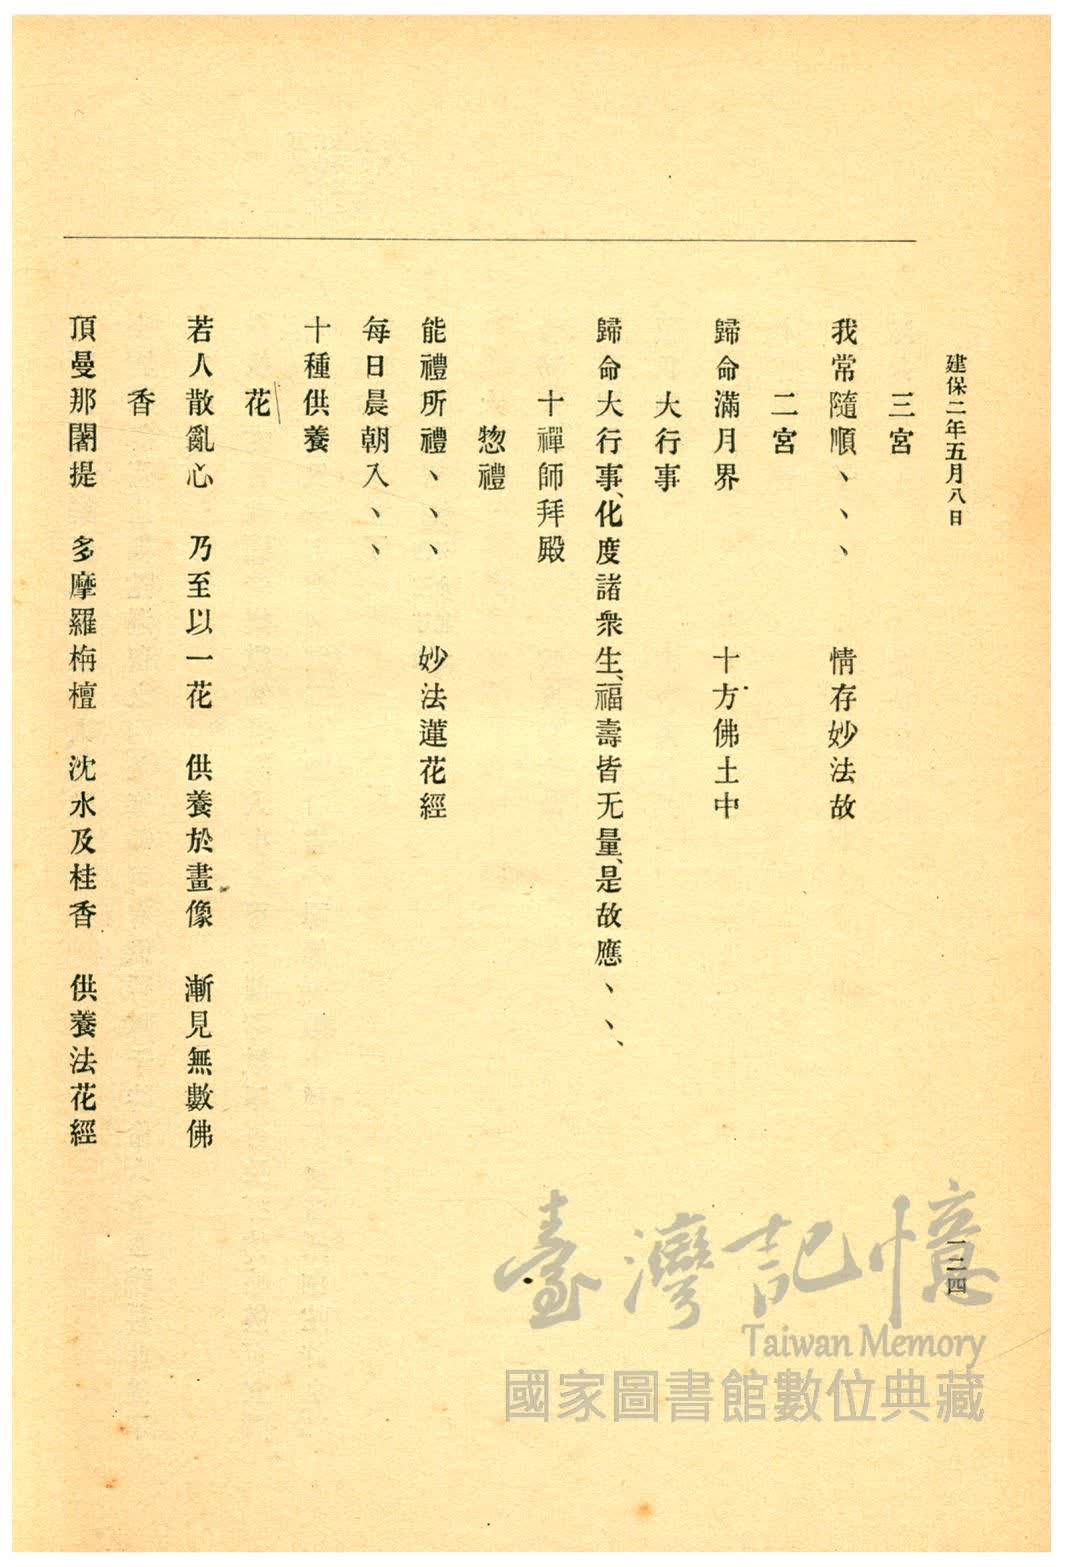 建保二年五月八日
三宮
我常隨順、、、　情存妙法故
二宮
歸命滿月界　十方佛土中
大行事
歸命大行事、化度諸衆生、福壽皆无量、是故應、、、
十禪師拜殿
惣禮
能禮所禮、、、　妙法蓮花經
每日晨朝入、、
十種供養
花
若人散亂心　乃至以一花　供養於畫像　漸見無數佛
香
頂曼那闍提　多摩羅栴檀　沈水及桂香　供養法花經
一二四
臺灣記憶
Taiwan Memory
國家圖書館數位典藏